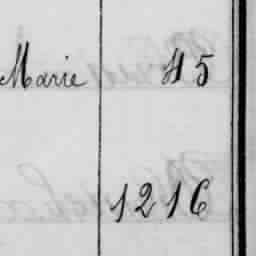 Marie 45
1216